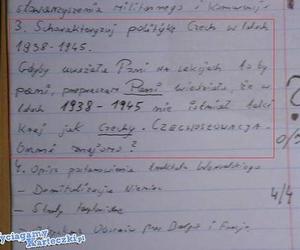 stowarzyszenia militarnego i
3. Scharakteryzuj politykę Czech w latach
1938-1945.
Gdyby uważała Pani na lekcjach to by
pani, przepraszam Pani wiedziała, że w
latach 1938-1945 nie istniał taki
kraj jak Czechy. CZECHOSŁOWACJA
brzmi znajomo?
0/
4. Opisz postanowienia traktatu Wersalskiego
- Demilitaryzacja Niemiec
4/4
- Straty
przez Danię i Francję
wyciagamy
Karteczki.pl